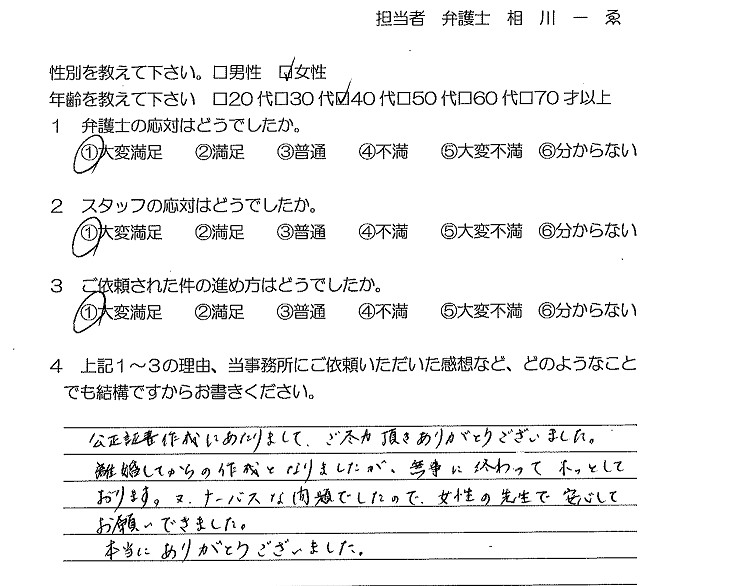 担当者 弁護士 相川一ゑ
性別を教えて下さい。□男性 ☑女性
年齢を教えて下さい □20代□30代☑40代□50代□60代□70才以上
1 弁護士の応対はどうでしたか。
①大変満足 ②満足 ③普通 ④不満 ⑤大変不満 ⑥分からない
2 スタッフの応対はどうでしたか。
①大変満足 ②満足 ③普通 ④不満 ⑤大変不満 ⑥分からない
3 ご依頼された件の進め方はどうでしたか。
①大変満足 ②満足 ③普通 ④不満 ⑤大変不満 ⑥分からない
4 上記1~3の理由、当事務所にご依頼いただいた感想など、どのようなこと
でも結構ですからお書きください。
公正証書作成にあたりまして、ご尽力頂きありがとうございました。
離婚してからの作成となりましたが、無事に終わってホッとして
おります。又、ナーバスな内題でしたので、女性の先生で安心して
お願いできました。
本当にありがとうございました。